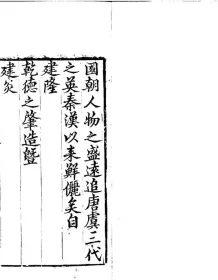 國朝人物之盛遠追唐虞三代
之英秦漢以来鮮儷矣自
建隆
乾德之肇造曁
建炎